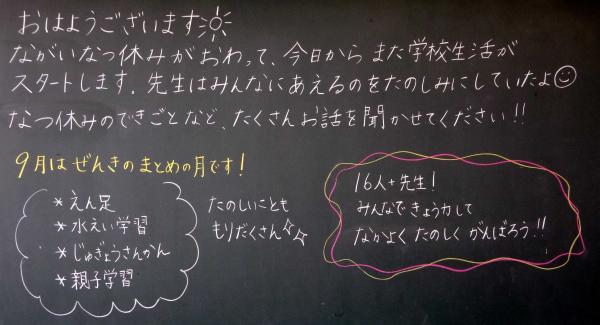 おはようございます
ながいなつ休みがおわって、今日から また学校生活が
スタートします。先生はみんなにあえるのをたのしみにしていたよ
なつ休みのできごとなど、たくさんお話を聞かせてください!!
9月は ぜんきの まとめの月です!
*えん足
*水えい学習
*じゅぎょうさんかん
*親子学習
たのしいことも
もりだくさん☆☆
16人+先生!
みんなで きょう力して
なかよく たのしく がんばろう!!